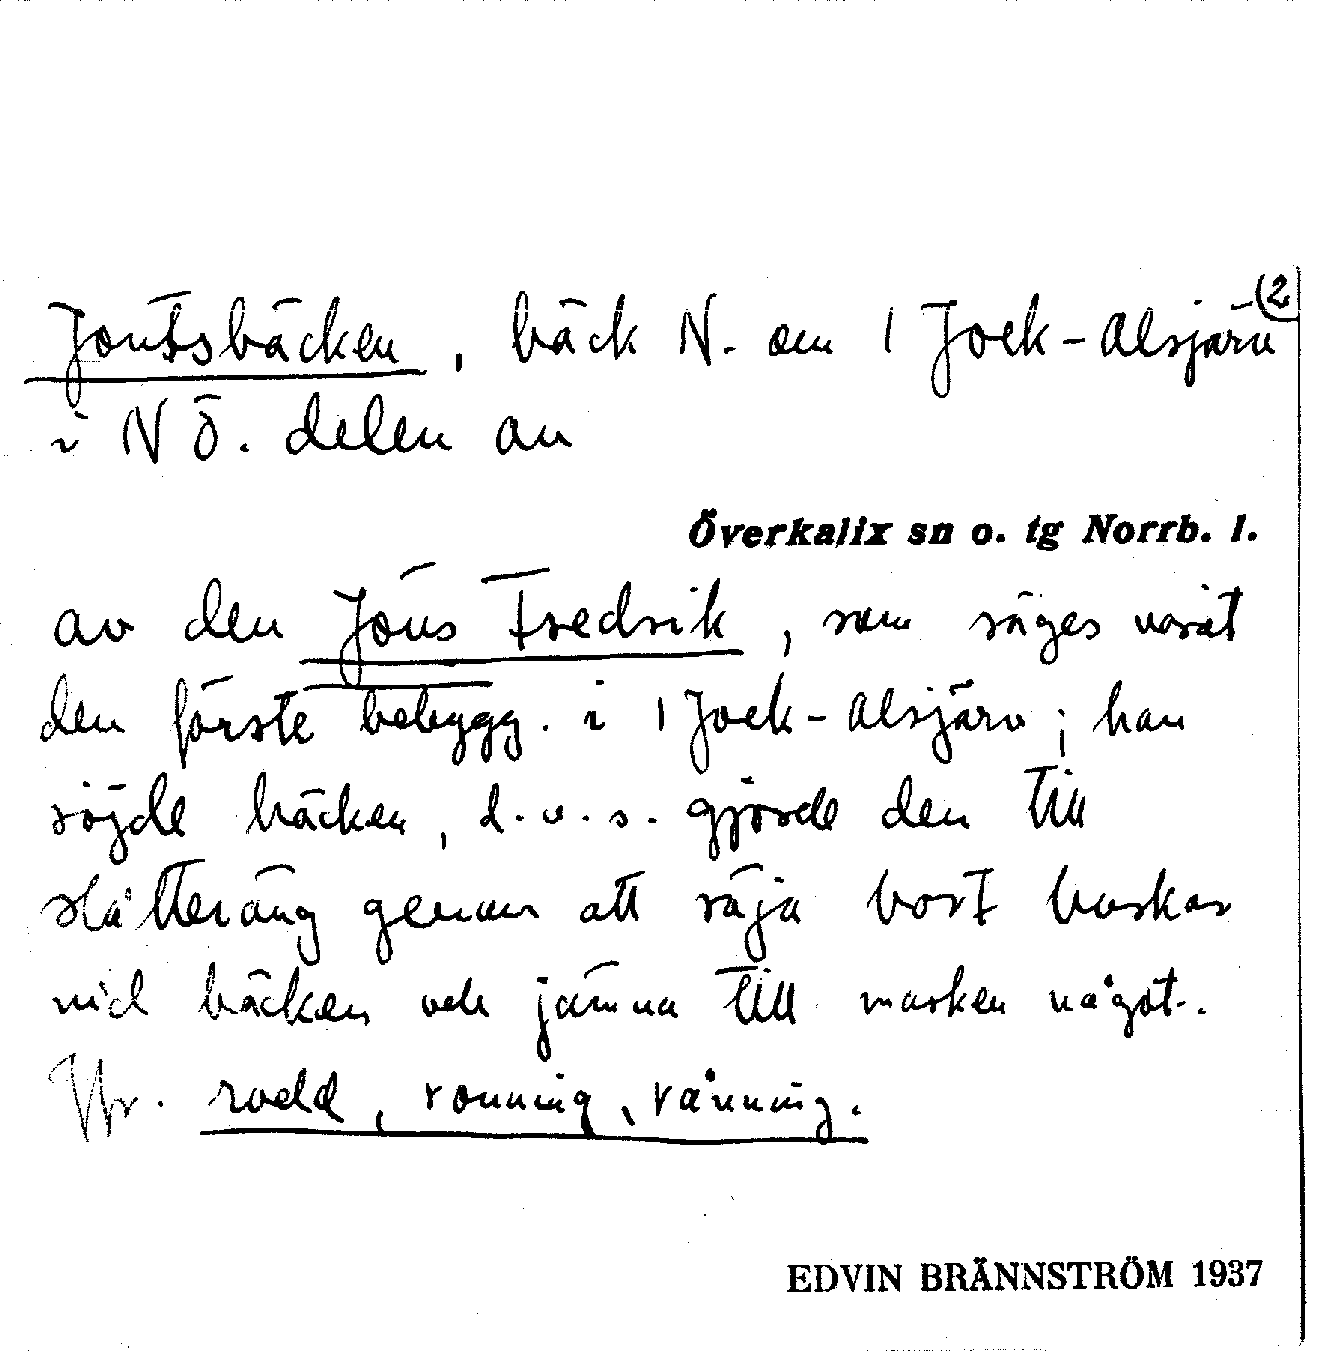 (2
Jontsbäcken, bäck N. om 1 Jock-Alsjärv
i NÖ. delen av
Överkalix sn o. tg Norrb. l.
av den Jöns Fredrik, som säges varit
den förste bebygg. i 1 Jock-Alsjärv; han
röjde bäcken, d.v.s. gjorde den till
slåtteräng genom att röja bort buskar
vid bäcken och jämna till marken något.
Jfr. rodd, ronning, rånning.
EDVIN BRÄNNSTRÖM 1937